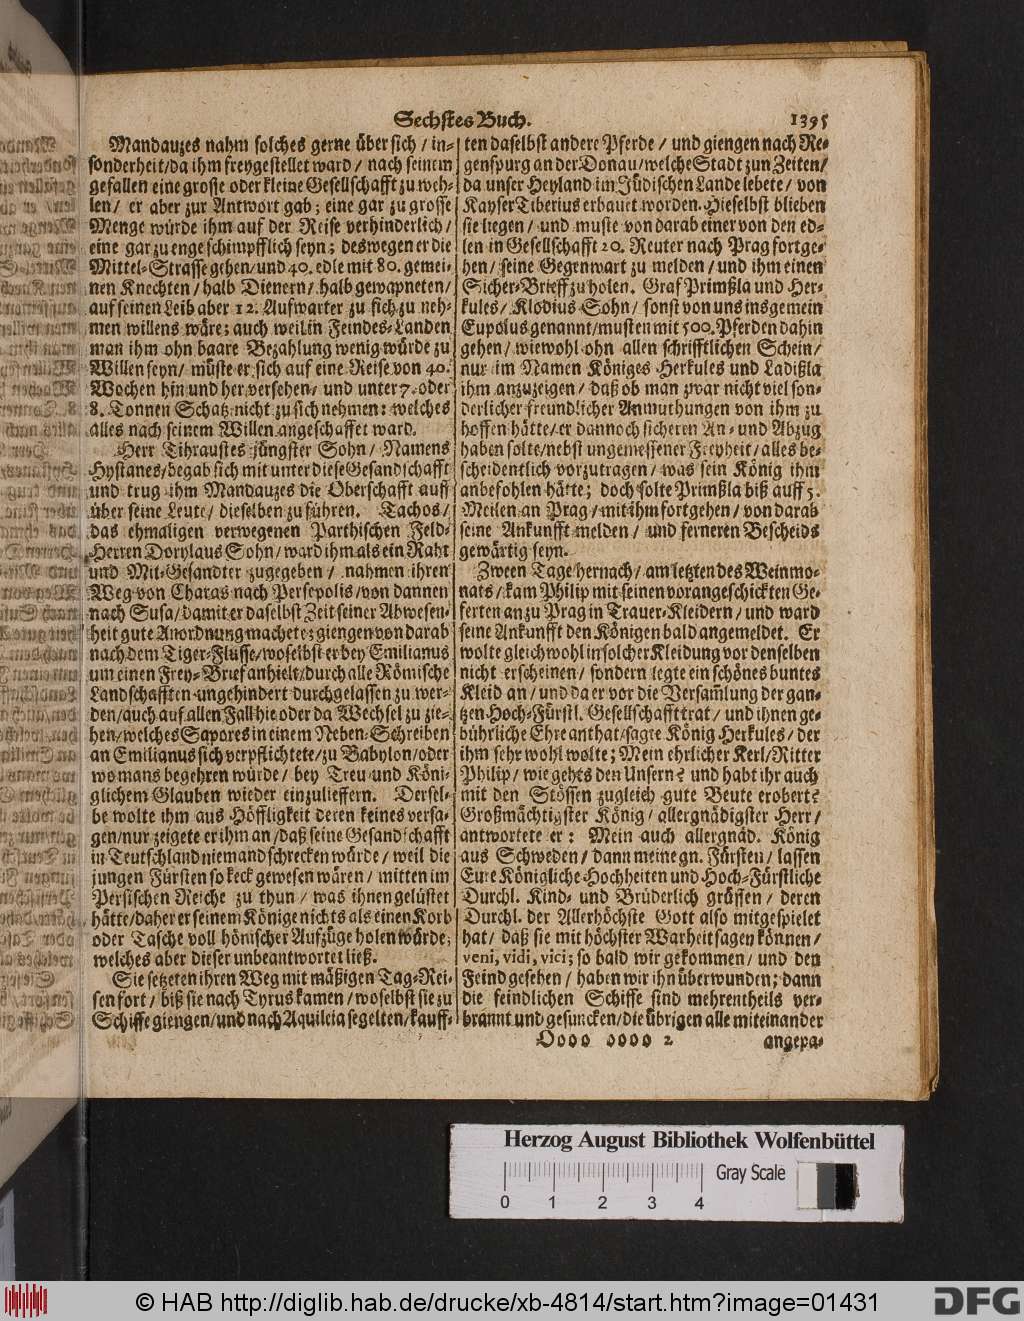 Sechstes Buch.
1395
Mandauzes nahm solches gerne über sich / in-
sonderheit / da ihm freygestellet ward / nach seinem
gefallen eine grosse oder kleine Gesellschafft zu weh-
len / er aber zur Antwort gab; eine gar zu grosse
Menge würde ihm auf der Reise verhinderlich /
eine gar zu enge schimpfflich seyn; deswegen er die
Mittel-Strasse gehen / und 40. edle mit 80. gemei-
nen Knechten / halb Dienern / halb gewapneten /
auf seinen Leib aber 12. Aufwarter zu sich zu neh-
men willens wäre; auch weil in Feindes-Landen
man ihm ohn baare Bezahlung wenig würde zu
Willen seyn / müste er sich auf eine Reise von 40.
Wochen hin und her versehen / und unter 7. oder
8. Tonnen Schatz nicht zu sich nehmen: welches
alles nach seinem Willen angeschaffet ward.
Herr Tihraustes jüngster Sohn / Namens
Hystanes / begab sich mit unter diese Gesandschafft
und trug ihm Mandauzes die Oberschafft auff
über seine Leute / dieselben zu führen. Tachos /
das ehmaligen verwegenen Parthischen Feld-
Herren Dorylaus Sohn / ward ihm als ein Raht
und Mit-Gesandter zugegeben / nahmen ihren
Weg von Charas nach Persepolis / von dannen
nach Susa / damit er daselbst Zeit seiner Abwesen-
heit gute Anordnung machete; giengen von darab
nach dem Tiger-Flusse / woselbst er bey Emilianus
um einen Frey-Brief anhielt / durch alle Römische
Landschafften ungehindert durchgelassen zu wer-
den / auch auf allen Fall hie oder da Wechsel zu zie-
hen / welches Sapores in einem Neben-Schreiben
an Emilianus sich verpflichtete / zu Babylon / oder
wo mans begehren würde / bey Treu und Köni-
glichem Glauben wieder einzulieffern. Dersel-
be wolte ihm aus Höffligkeit deren keines versa-
gen / nur zeigete er ihm an / daß seine Gesandschafft
in Teutschland niemand schrecken würde / weil die
jungen Fürsten so keck gewesen wären / mitten im
Persischen Reiche zu thun / was ihnen gelüstet
hätte / daher er seinem Könige nichts als einen Korb
oder Tasche voll hönischer Aufzüge holen würde;
welches aber dieser unbeantwortet ließ.
Sie setzeten ihren Weg mit mäßigen Tag-Rei-
sen fort / biß sie nach Tyrus kamen / woselbst sie zu
Schiffe giengen / und nach Aquileia segelten / kauff-
ten daselbst andere Pferde / und giengen nach Re-
genspurg an der Donau / welche Stadt zun Zeiten /
da unser Heyland im Jüdischen Lande lebete / von
Kayser Tiberius erbauet worden. Hieselbst blieben
sie liegen / und muste von darab einer von den ed-
len in Gesellschafft 20. Reuter nach Prag fortge-
hen / seine Gegenwart zu melden / und ihm einen
Sicher-Brieff zu holen. Graf Primßla und Her-
kules / Klodius Sohn / sonst von uns insgemein
Eupolus genannt / musten mit 500. Pferden dahin
gehen / wiewohl ohn allen schrifftlichen Schein /
nur im Namen Königes Herkules und Ladißla
ihm anzuzeigen / daß ob man zwar nicht viel son-
derlicher freundlicher Anmuthungen von ihm zu
hoffen hätte / er dannoch sicheren An- und Abzug
haben solte / nebst ungemessener Freyheit / alles be-
scheidentlich vorzutragen / was sein König ihm
anbefohlen hätte; doch solte Primßla biß auff 5.
Meilen an Prag / mit ihm fortgehen / von darab
seine Ankunfft melden / und ferneren Bescheids
gewärtig seyn.
Zween Tage hernach / am letzten des Weinmo-
nats / kam Philip mit seinen vorangeschickten Ge-
ferten an zu Prag in Trauer-Kleidern / und ward
seine Ankunfft den Königen bald angemeldet. Er
wolte gleichwohl in solcher Kleidung vor denselben
nicht erscheinen / sondern legte ein schönes buntes
Kleid an / und da er vor die Versam̃lung der gan-
tzen Hoch-Fürstl. Gesellschafft trat / und ihnen ge-
bührliche Ehre anthat / sagte König Herkules / der
ihm sehr wohl wolte; Mein ehrlicher Kerl / Ritter
Philip / wie gehts den Unsern? und habt ihr auch
mit den Stössen zugleich gute Beute erobert?
Großmächtigster König / allergnädigster Herr /
antwortete er: Mein auch allergnäd. König
aus Schweden / dann meine gn. Fürsten / lassen
Eure Königliche Hochheiten und Hoch-Fürstliche
Durchl. Kind- und Brüderlich grüssen / deren
Durchl. der Allerhöchste Gott also mitgespielet
hat / daß sie mit höchster Warheit sagen können /
veni, vidi, vici; so bald wir gekommen / und den
Feind gesehen / haben wir ihn überwunden; dann
die feindlichen Schiffe sind mehrentheils ver-
brannt und gesuncken / die übrigen alle miteinander
Oooo oooo 2
angepa-
Herzog August Bibliothek Wolfenbüttel
Gray Scale
0 1 2 3 4
© HAB http://diglib.hab.de/drucke/xb-4814/start.htm?image=01431
DFG